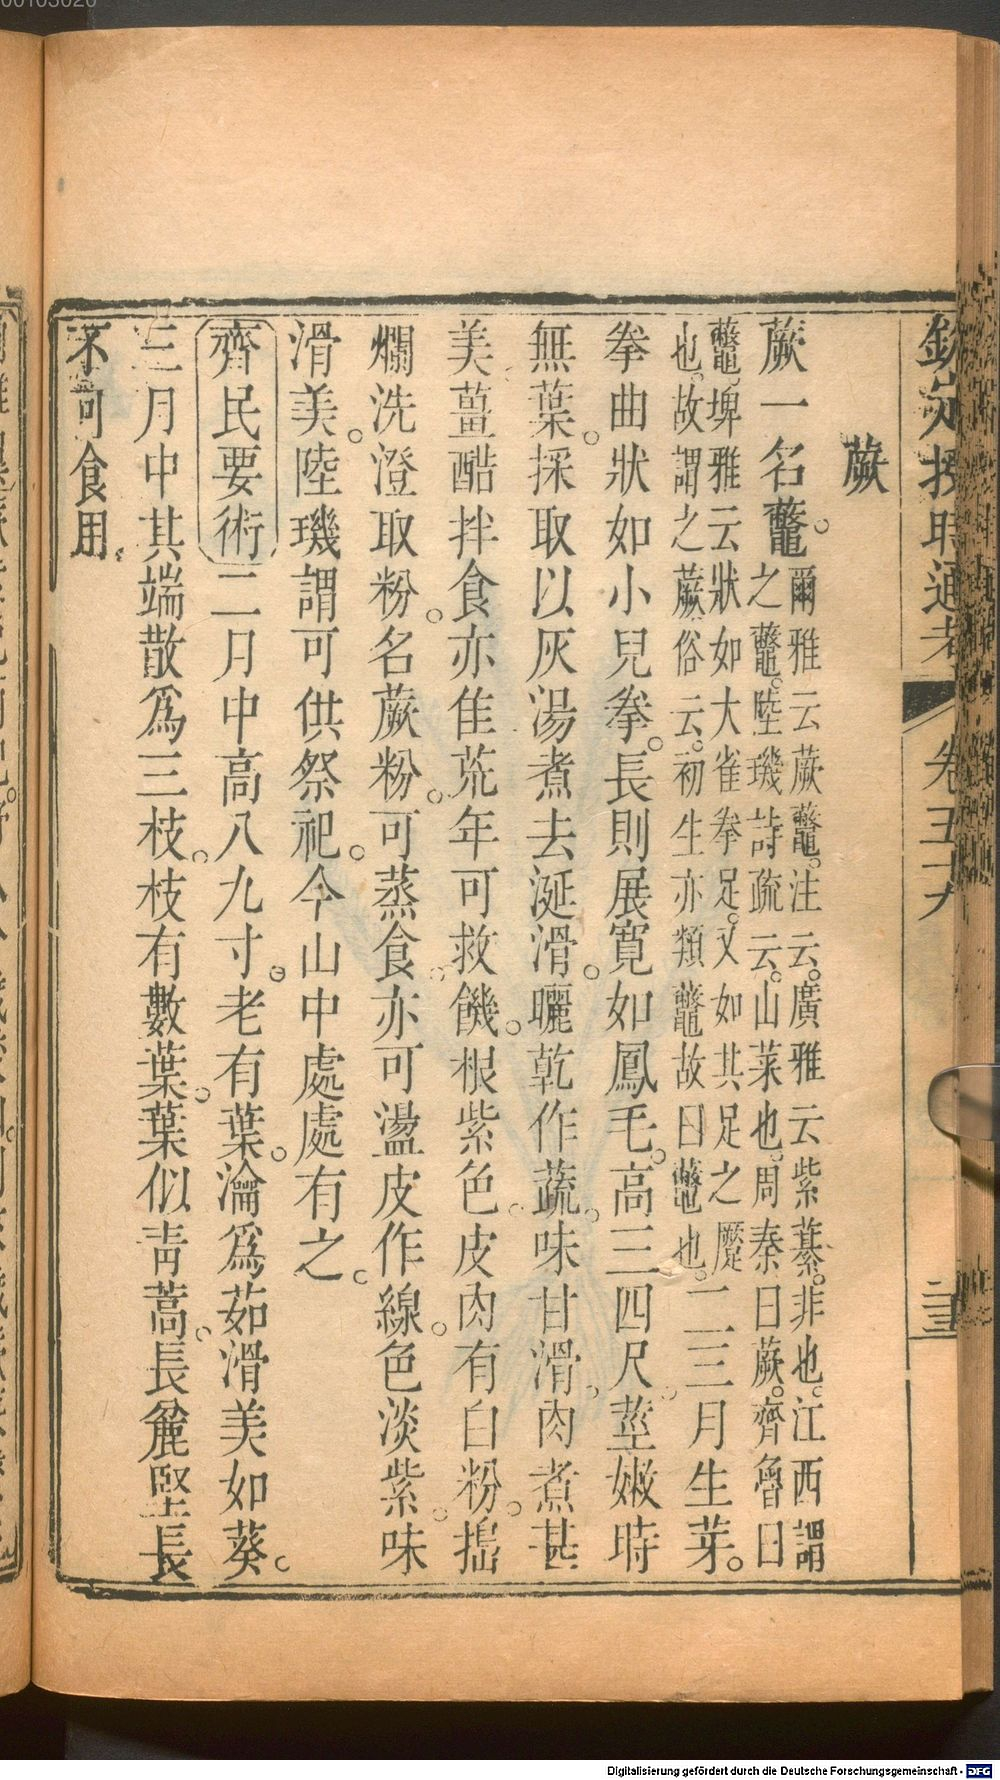 00103020
欽定授時通考 卷五十九 二三
蕨
蕨一名虌。爾雅云蕨虌。注云。廣雅云紫蘩。非也。江西謂
之虌。陸璣詩疏云。山菜也。周秦曰蕨。齊魯曰
虌。埤雅云狀如大雀拳足。又如其足之蹷
也。故謂之蕨。俗云。初生亦類鼈故曰虌也。二三月生芽。
拳曲狀如小兒拳。長則展寬如鳳毛。高三四尺。莖嫩時
無葉。採取以灰湯煮去涎滑。曬乾作蔬。味甘滑。肉煮甚
美薑醋拌食亦佳荒年可救饑。根紫色。皮肉有白粉。搗
爛洗澄取粉。名蕨粉。可蒸食。亦可盪皮作線。色淡紫。味
滑美。陸璣謂可供祭祀。今山中處處有之。
齊民要術二月中高八九寸。老有葉。瀹爲茹滑美如葵。
三月中其端散爲三枝。枝有數葉。葉似青蒿。長麄堅長
不可食用。
Digitalisierung gefördert durch die Deutsche Forschungsgemeinschaft - DFG